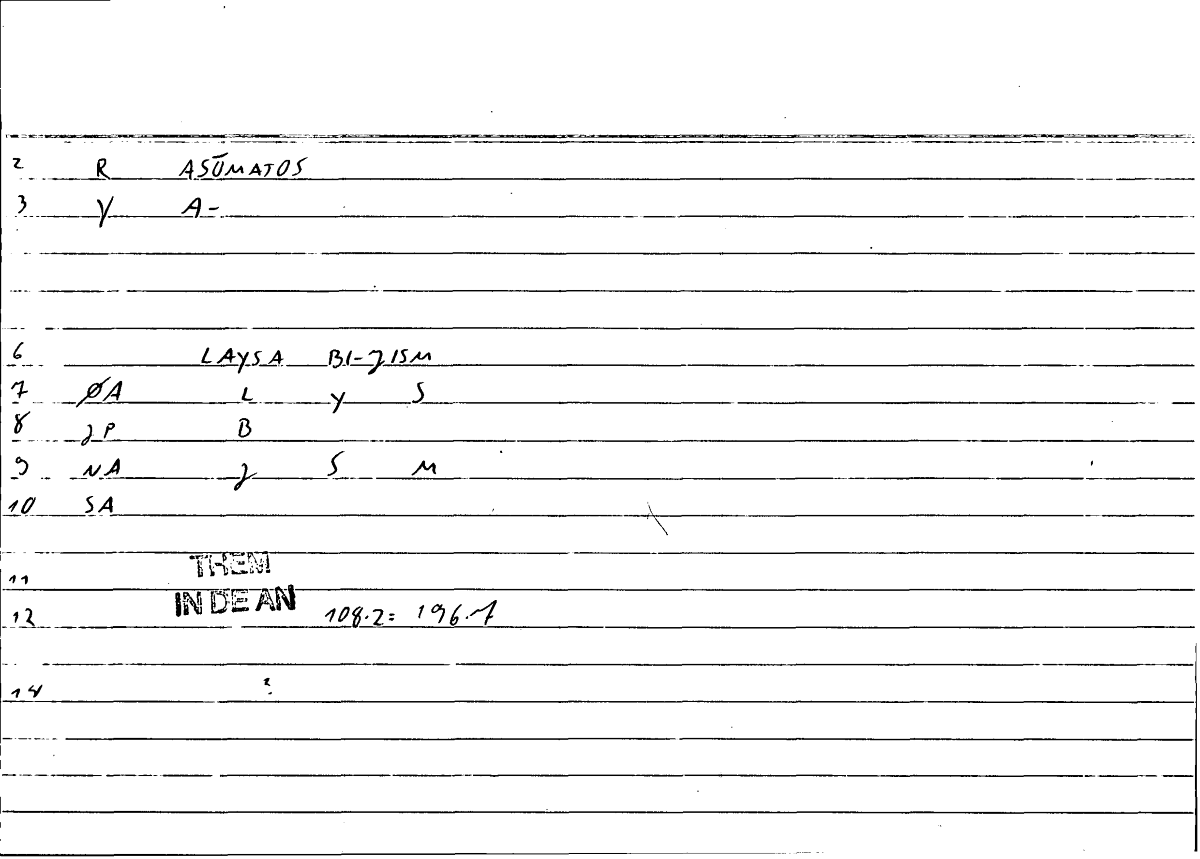 2 R ASŪMATOS
3 γ A-
6 LAYSA BI-ʒISM
7 ØA L Y S
8 ʒP B
9 NA ʒ S M
10 SA
11 THEM
12 IN DE AN 108.2= 196.7
14 ?